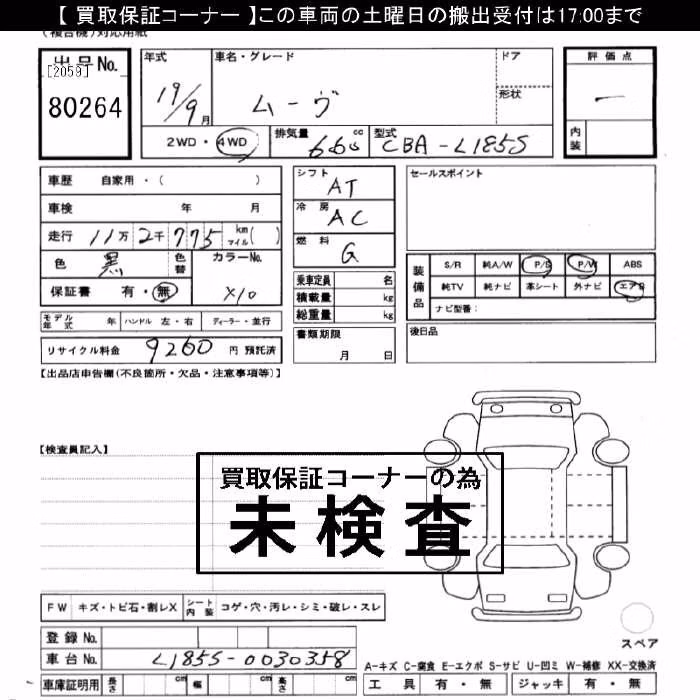 【 買取保証コーナー 】この車両の土曜日の搬出受付は17:00まで
(複合機)対応用紙
出品No.
[2059]
80264
年式
19/9月
車名・グレード
ムーヴ
ドア
形状
評価点
ー
内装
2WD・4WD
排気量
660 cc
型式
CBA-L185S
車歴 自家用・( )
車検 年 月
走行 11万 2千 775 km マイル( )
色 黒
色替
カラーNo.
X10
保証書 有・無
シフト
AT
冷房
AC
燃料
G
乗車定員 名
積載量 kg
総重量 kg
書類期限
月 日
セールスポイント
装備品
S/R 純A/W P/S P/W ABS
純TV 純ナビ 革シート 外ナビ エアB
ナビ型番:
後日品
モデル年式 年 ハンドル 左・右 ディーラー・並行
リサイクル料金 9260 円 預託済
【出品店申告欄(不良箇所・欠品・注意事項等)】
【検査員記入】
買取保証コーナーの為
未検査
FW キズ・トビ石・割レX シート内装 コゲ・穴・汚レ・シミ・破レ・スレ
登録No.
車台No. L185S-0030358
車庫証明用 長さ cm 幅 cm 高さ cm
スペア
A-キズ C-腐食 E-エクボ S-サビ U-凹ミ W-補修 XX-交換済
工具 有・無 ジャッキ 有・無